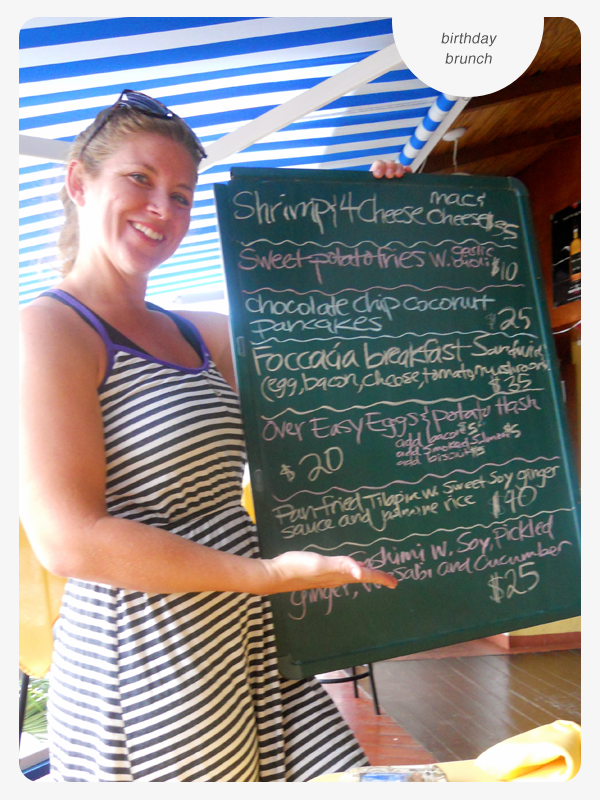 birthday
brunch
Shrimp & 4 Cheese mac &
Cheese
Sweet potato fries w. garlic
$10
chocolate chip coconut
pancakes 25
Foccacia breakfast Sandwich
(egg, bacon, cheese, tomato, mushroom)
$35
Over Easy Eggs & potato Hash
add bacon $5
add Smoked Salmon $5
add biscuit $5
$20
Pan-fried Tilapia w. Sweet Soy ginger
sauce and jasmine rice $40
Sashimi w. Soy, Pickled
ginger, Wasabi and Cucumber
$25